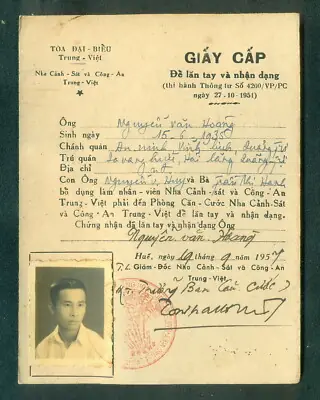 TOA ĐẠI-BIỂU
Trung-Việt
Nhà Cảnh-Sát và Công-An
Trung-Việt
GIẤY CẤP
Để lăn tay và nhận dạng
(thi hành Thông tư Số 4200/VP/PC
ngày 27-10-1951)
Ông Nguyễn Văn Hoàng
Sinh ngày 15-6-1935
Chánh quán An ninh, Vĩnh linh, Quảng Trị
Trú quán Hải lăng Quảng Trị
Địa chỉ
Con Ông Nguyễn Huy và Bà Trần Thị Hạnh
bổ dụng làm nhân-viên Nhà Cảnh-sát và Công-An
Trung-Việt phải đến Phòng Căn-Cước Nhà Cảnh-Sát
và Công-An Trung-Việt để lăn tay và nhận dạng.
Chứng nhận đã lăn tay và nhận dạng Ông
Nguyễn Văn Hoàng
Huế, ngày 19 tháng 9 năm 1957
T.L. Giám-Đốc Nha Cảnh-Sát và Công-An
Trung-Việt
Trưởng Ban Căn Cước